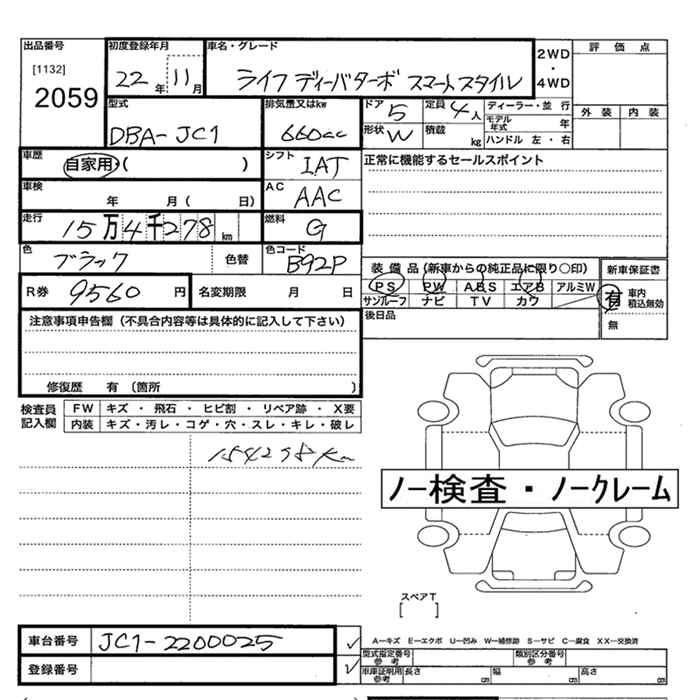 出品番号 初度登録年月 車名・グレード 評価点
[1132]
2059 22年 11月 ライフ ディーバターボ スマートスタイル 2WD・4WD
外装 内装
型式 排気量又はkw ドア 5 定員 4人 ディーラー・並行
モデル年式 年
DBA-JC1 660cc 形状 W 積載 kg ハンドル 左・右
車歴 自家用・( ) シフト IAT 正常に機能するセールスポイント
車検 年 月( 日) AC AAC
走行 15万4千278km 燃料 G
色 ブラック 色替 色コード B92P
装備品(新車からの純正品に限り○印) 新車保証書
PS PW ABS エアB アルミW 有 車内積込無効
サンルーフ ナビ TV カワ
R券 9560円 名変期限 月 日 後日品 無
注意事項申告欄(不具合内容等は具体的に記入して下さい)
修復歴 有(箇所 )
検査員記入欄 FW キズ・飛石・ヒビ割・リペア跡・X要
内装 キズ・汚レ・コゲ・穴・スレ・キレ・破レ
ノー検査・ノークレーム
スペアT
[ ]
車台番号 JC1-2200025 A-キズ E-エクボ U-凹み W-補修跡 S-サビ C-腐食 XX-交換済
型式指定番号 参考 類別区分番号 参考
登録番号 車庫証明用 参考 長さ 幅 高さ